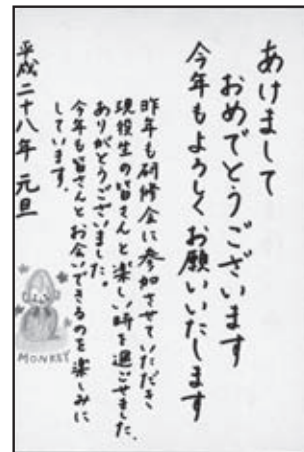 あけまして
おめでとうございます
今年もよろしくお願いいたします
昨年も研修会に参加させていただき
現役生の皆さんと楽しい時を過ごせました。
ありがとうございました。
今年も皆さんとお会いできるのを楽しみに
しています。
平成二十八年 元旦
MONKEY